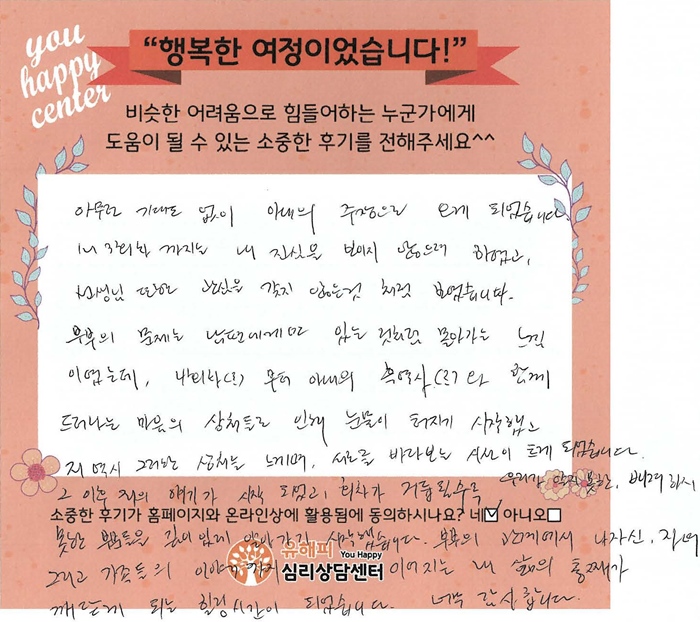 you
happy
center
“행복한 여정이었습니다!”
비슷한 어려움으로 힘들어하는 누군가에게
도움이 될 수 있는 소중한 후기를 전해주세요^^
아무런 기대도 없이 아내의 주장으로 오게 되었습니다.
1~3회차 까지는 내 진심을 보이지 않으려 하였고,
선생님 또한 관심을 갖지 않는것 처럼 보였습니다.
부부의 문제는 남편에게만 있는 것처럼 몰아가는 느낌
이었는데, 4회차(?) 부터 아내의 흑역사(?)와 함께
드러나는 마음의 상처들로 인해 눈물이 터지기 시작했고
저 역시 그러한 상처를 느끼며, 서로를 바라보는 시선이 트게 되었습니다.
그 이후 저의 얘기가 시작 되었고, 회차가 거듭될수록 우리가 알지 못한, 배려하지
소중한 후기가 홈페이지와 온라인상에 활용됨에 동의하시나요? 네☑ 아니오☐
못한 부분들을 깊이있게 알아가기 시작했습니다. 부부의 관계에서 나자신, 자녀
유해피 You Happy
심리상담센터
그리고 가족들의 이야기까지 이어지는 내 삶의 통째가
깨닫게 되는 힐링시간이 되었습니다. 너무 감사합니다.